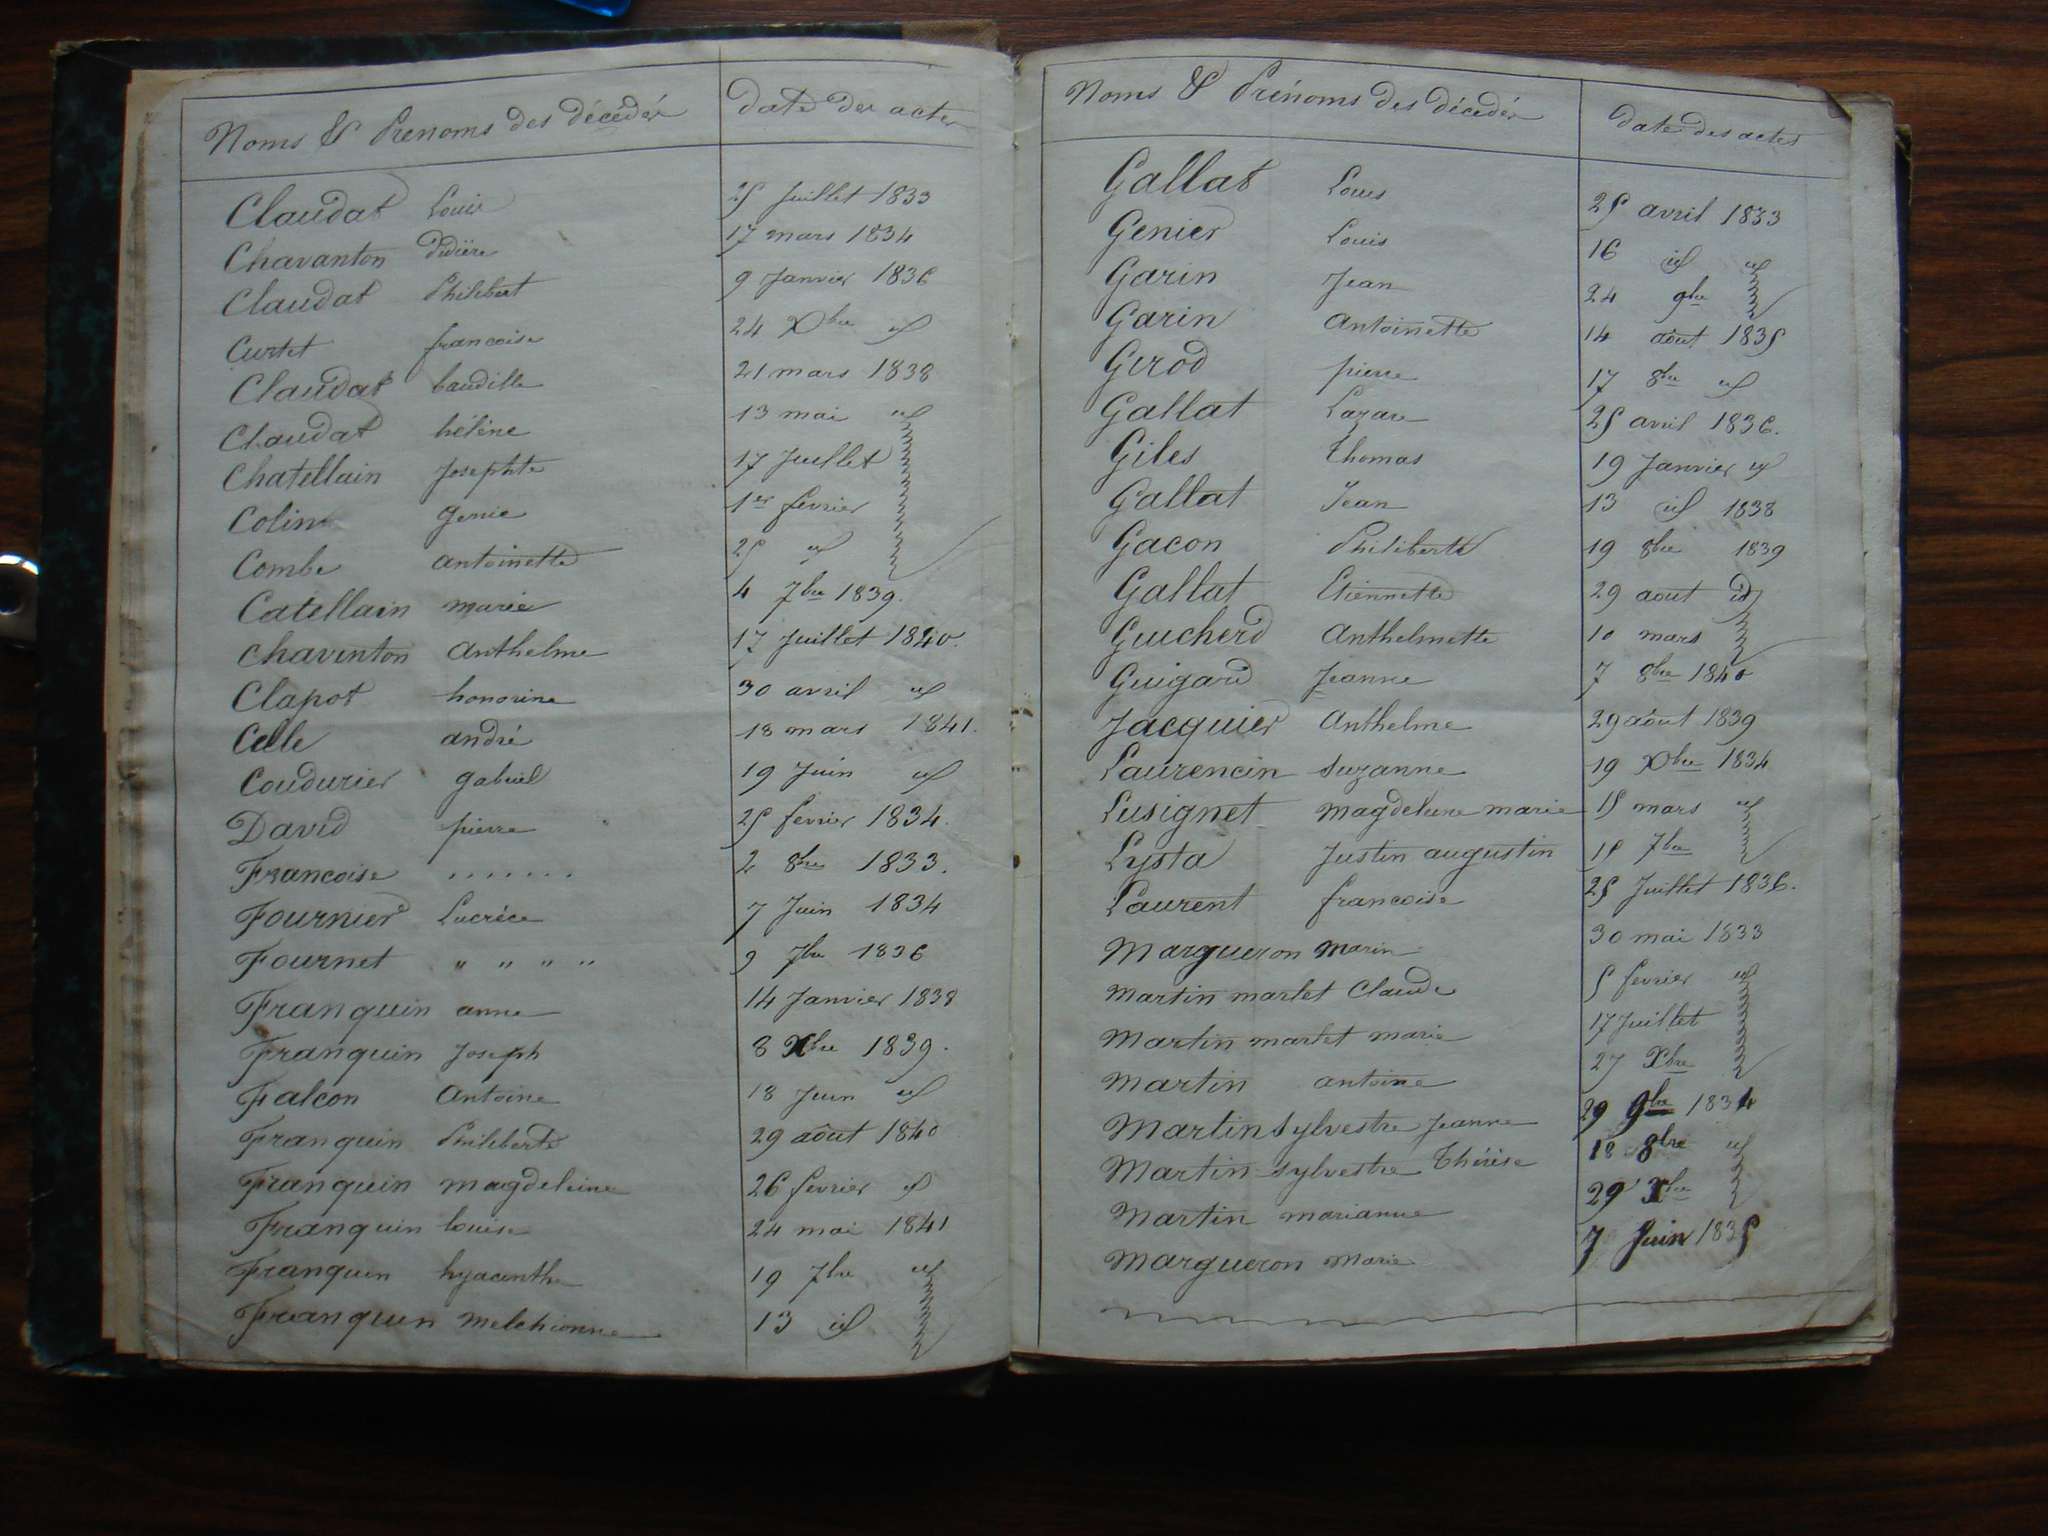 Noms & Prénoms des décédés Date des actes
Claudat Louis 25 Juillet 1833
Chavanton Didière 17 mars 1834
Claudat Philibert 9 Janvier 1836
Curtet francoise 24 Xbre id
Claudat baudille 21 mars 1838
Claudat hélène 13 mai id
Chatellain Josephte 17 Juillet
Colin genie 1er fevrier
Combe antoinette 25 id
Catellain marie 4 7bre 1839.
Chavinton Anthelme 17 Juillet 1840.
Clapot honorine 30 avril id
Celle andré 18 mars 1841.
Coudurier gabriel 19 Juin id
David pierre 25 fevrier 1834.
Francoise ....... 2 8bre 1833.
Fournier Lucrèce 7 Juin 1834
Fournet " " " " 9 7bre 1836
Franquin anne 14 Janvier 1838
Franquin Joseph 8 Xbre 1839.
Falcon Antoine 18 Juin id
Franquin Philiberte 29 août 1840
Franquin magdeleine 26 fevrier id
Franquin louise 24 mai 1841
Franquin hyacinthe 19 7bre id
Franquin melchionne 13 id
Noms & Prénoms des décédés Date des actes
Gallat Louis 25 avril 1833
Genier Louis 16 id id
Garin Jean 24 9bre
Garin Antoinette 14 août 1835
Girod pierre 17 8bre id
Gallat Lazare 25 avril 1836.
Giles Thomas 19 Janvier id
Gallat Jean 13 id 1838
Gacon Philiberte 19 8bre 1839
Gallat Etiennette 29 aout id
Guicherd Anthelmette 10 mars
Guigard Jeanne 7 8bre 1840
Jacquier Anthelme 29 août 1839
Laurencin Suzanne 19 Xbre 1834
Lusignet magdeleine marie 15 mars id
Lysta Justin augustin 15 7bre
Laurent francoise 25 Juillet 1836.
Margueron marin 30 mai 1833
Martin marlet Claude 5 fevrier id
Martin marlet marie 17 Juillet
Martin antoine 27 Xbre
Martin Sylvestre Jeanne 29 9bre 1834
Martin Sylvestre Thérèse 18 8bre id
Martin marianne 29 Xbre
Margueron Marie 7 Juin 1835